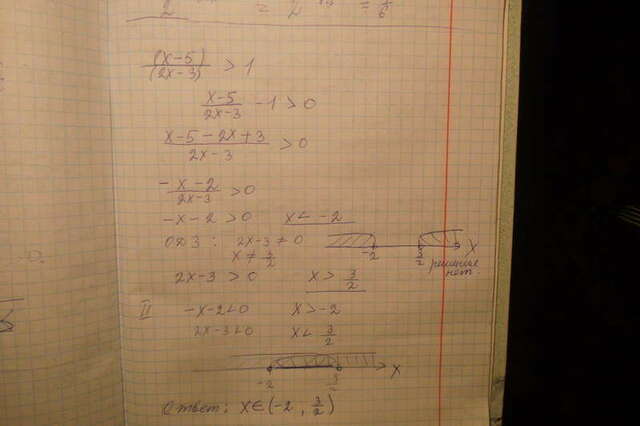 (x-5)/(2x-3) > 1
x-5/2x-3 -1 > 0
x-5-2x+3/2x-3 > 0
-x-2/2x-3 > 0
-x-2 > 0 x < -2
ОДЗ: 2x-3 ≠ 0
x ≠ 3/2
-2 3/2 x
решение нет
2x-3 > 0 x > 3/2
II -x-2<0 x>-2
2x-3<0 x < 3/2
-2 3/2 x
Ответ: x∈(-2, 3/2)